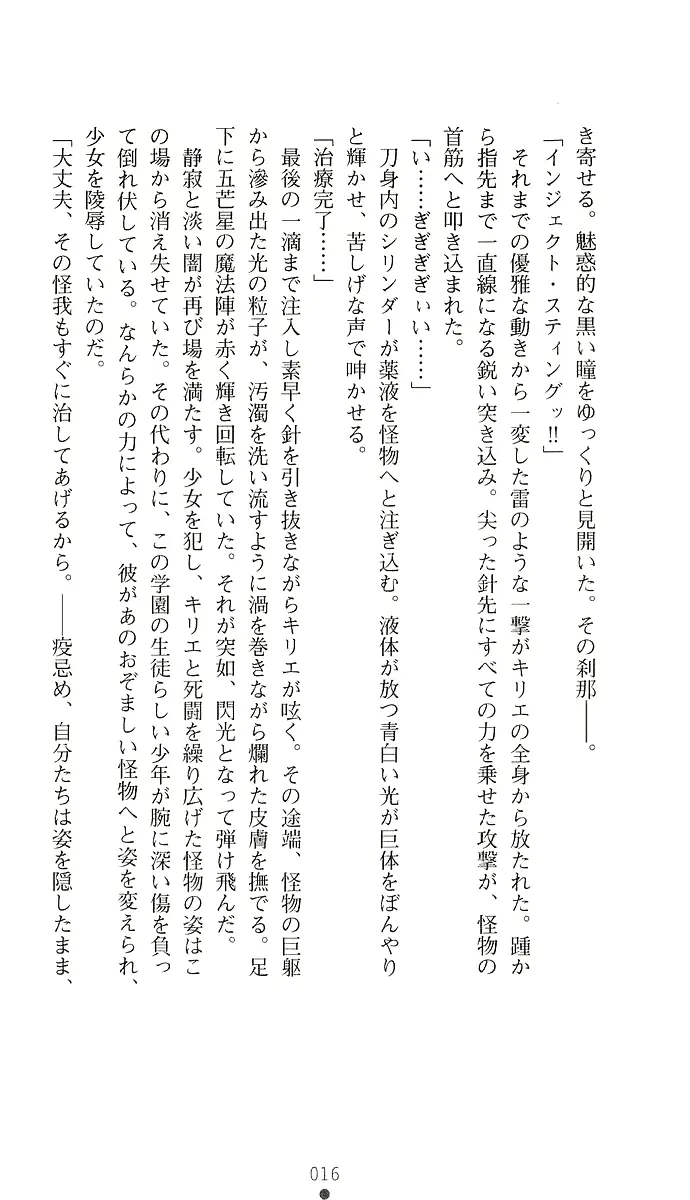 き寄せる。魅惑的な黒い瞳をゆっくりと見開いた。その刹那――。
「インジェクト・スティングッ!!」
それまでの優雅な動きから一変した雷のような一撃がキリエの全身から放たれた。踵か
ら指先まで一直線になる鋭い突き込み。尖った針先にすべての力を乗せた攻撃が、怪物の
首筋へと叩き込まれた。
「い……ぎぎぎぎぃい……」
刀身内のシリンダーが薬液を怪物へと注ぎ込む。液体が放つ青白い光が巨体をぼんやり
と輝かせ、苦しげな声で呻かせる。
「治療完了……」
最後の一滴まで注入し素早く針を引き抜きながらキリエが呟く。その途端、怪物の巨躯
から滲み出た光の粒子が、汚濁を洗い流すように渦を巻きながら爛れた皮膚を撫でる。足
下に五芒星の魔法陣が赤く輝き回転していた。それが突如、閃光となって弾け飛んだ。
静寂と淡い闇が再び場を満たす。少女を犯し、キリエと死闘を繰り広げた怪物の姿はこ
の場から消え失せていた。その代わりに、この学園の生徒らしい少年が腕に深い傷を負っ
て倒れ伏している。なんらかの力によって、彼があのおぞましい怪物へと姿を変えられ、
少女を陵辱していたのだ。
「大丈夫、その怪我もすぐに治してあげるから。――疫忌め、自分たちは姿を隠したまま、
016